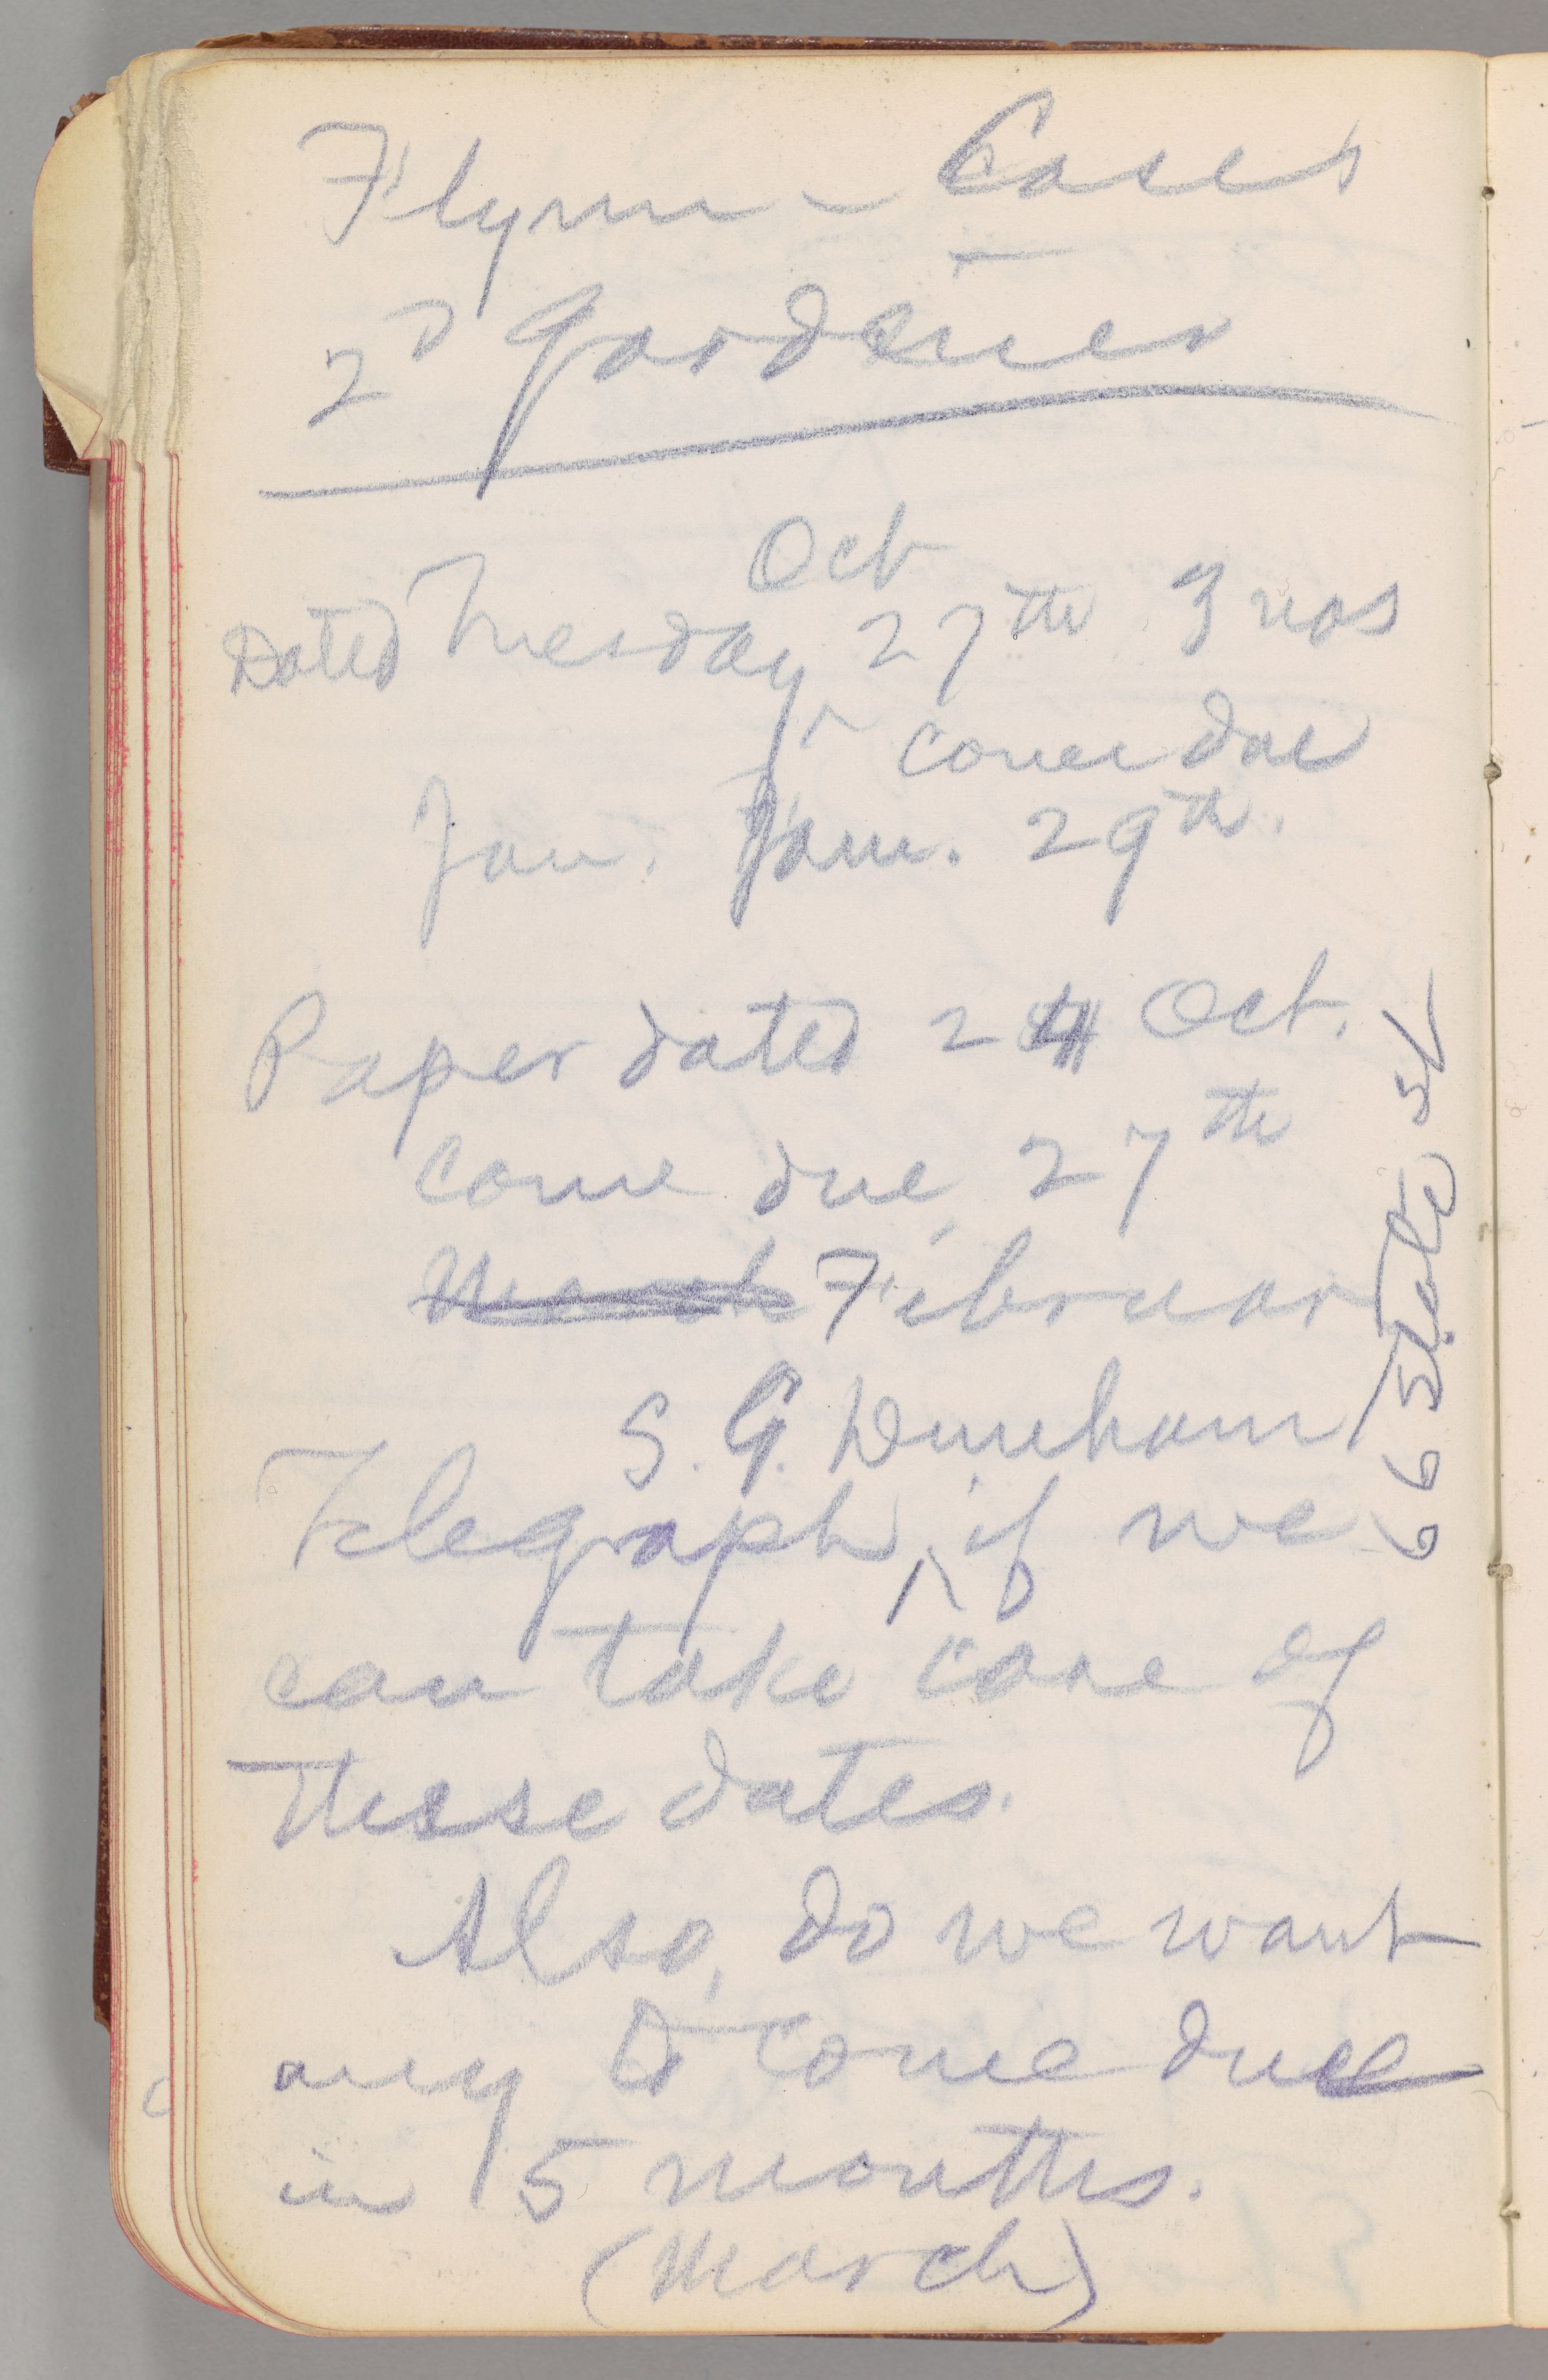 Flynn - Cases
2D Gardener
Oct
Dated Tuesday ^ 27th 3 mos
come due
Jan. Jan. 29th.
Paper dated 24 Oct.
come due, 27th
March Februar
S. G. Dunham
66 State St
Telegraph, if we
can take care of
these dates.
Also, do we want
any to come due
in 5 months.
(March)